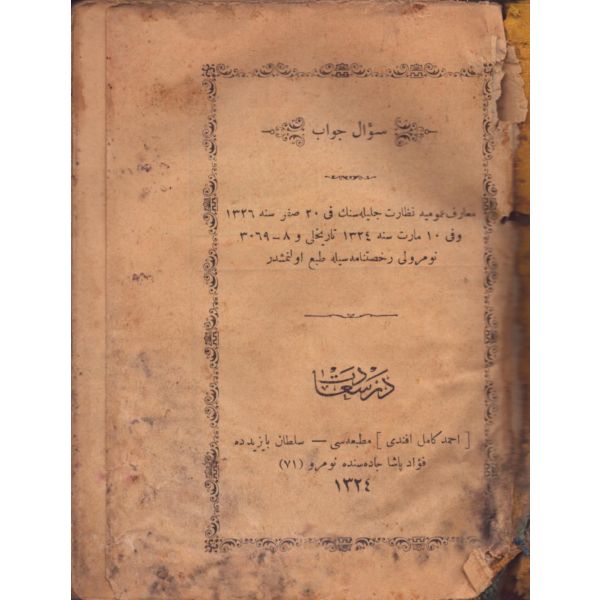 سؤال جواب
معارف عموميه نظارت جليله‌سنك فى ٢٠ صفر سنه ١٣٢٦
وفى ١٠ مارت سنه ١٣٢٤ تاريخلى و ٨-٣٠٦٩
نومرولى رخصتنامه‌سيله طبع اولنمشدر
درسعادت
[ احمد كامل افندى ] مطبعه‌سى — سلطان بايزيدده
فؤاد پاشا جاده‌سنده نومرو (٧١)
١٣٢٤